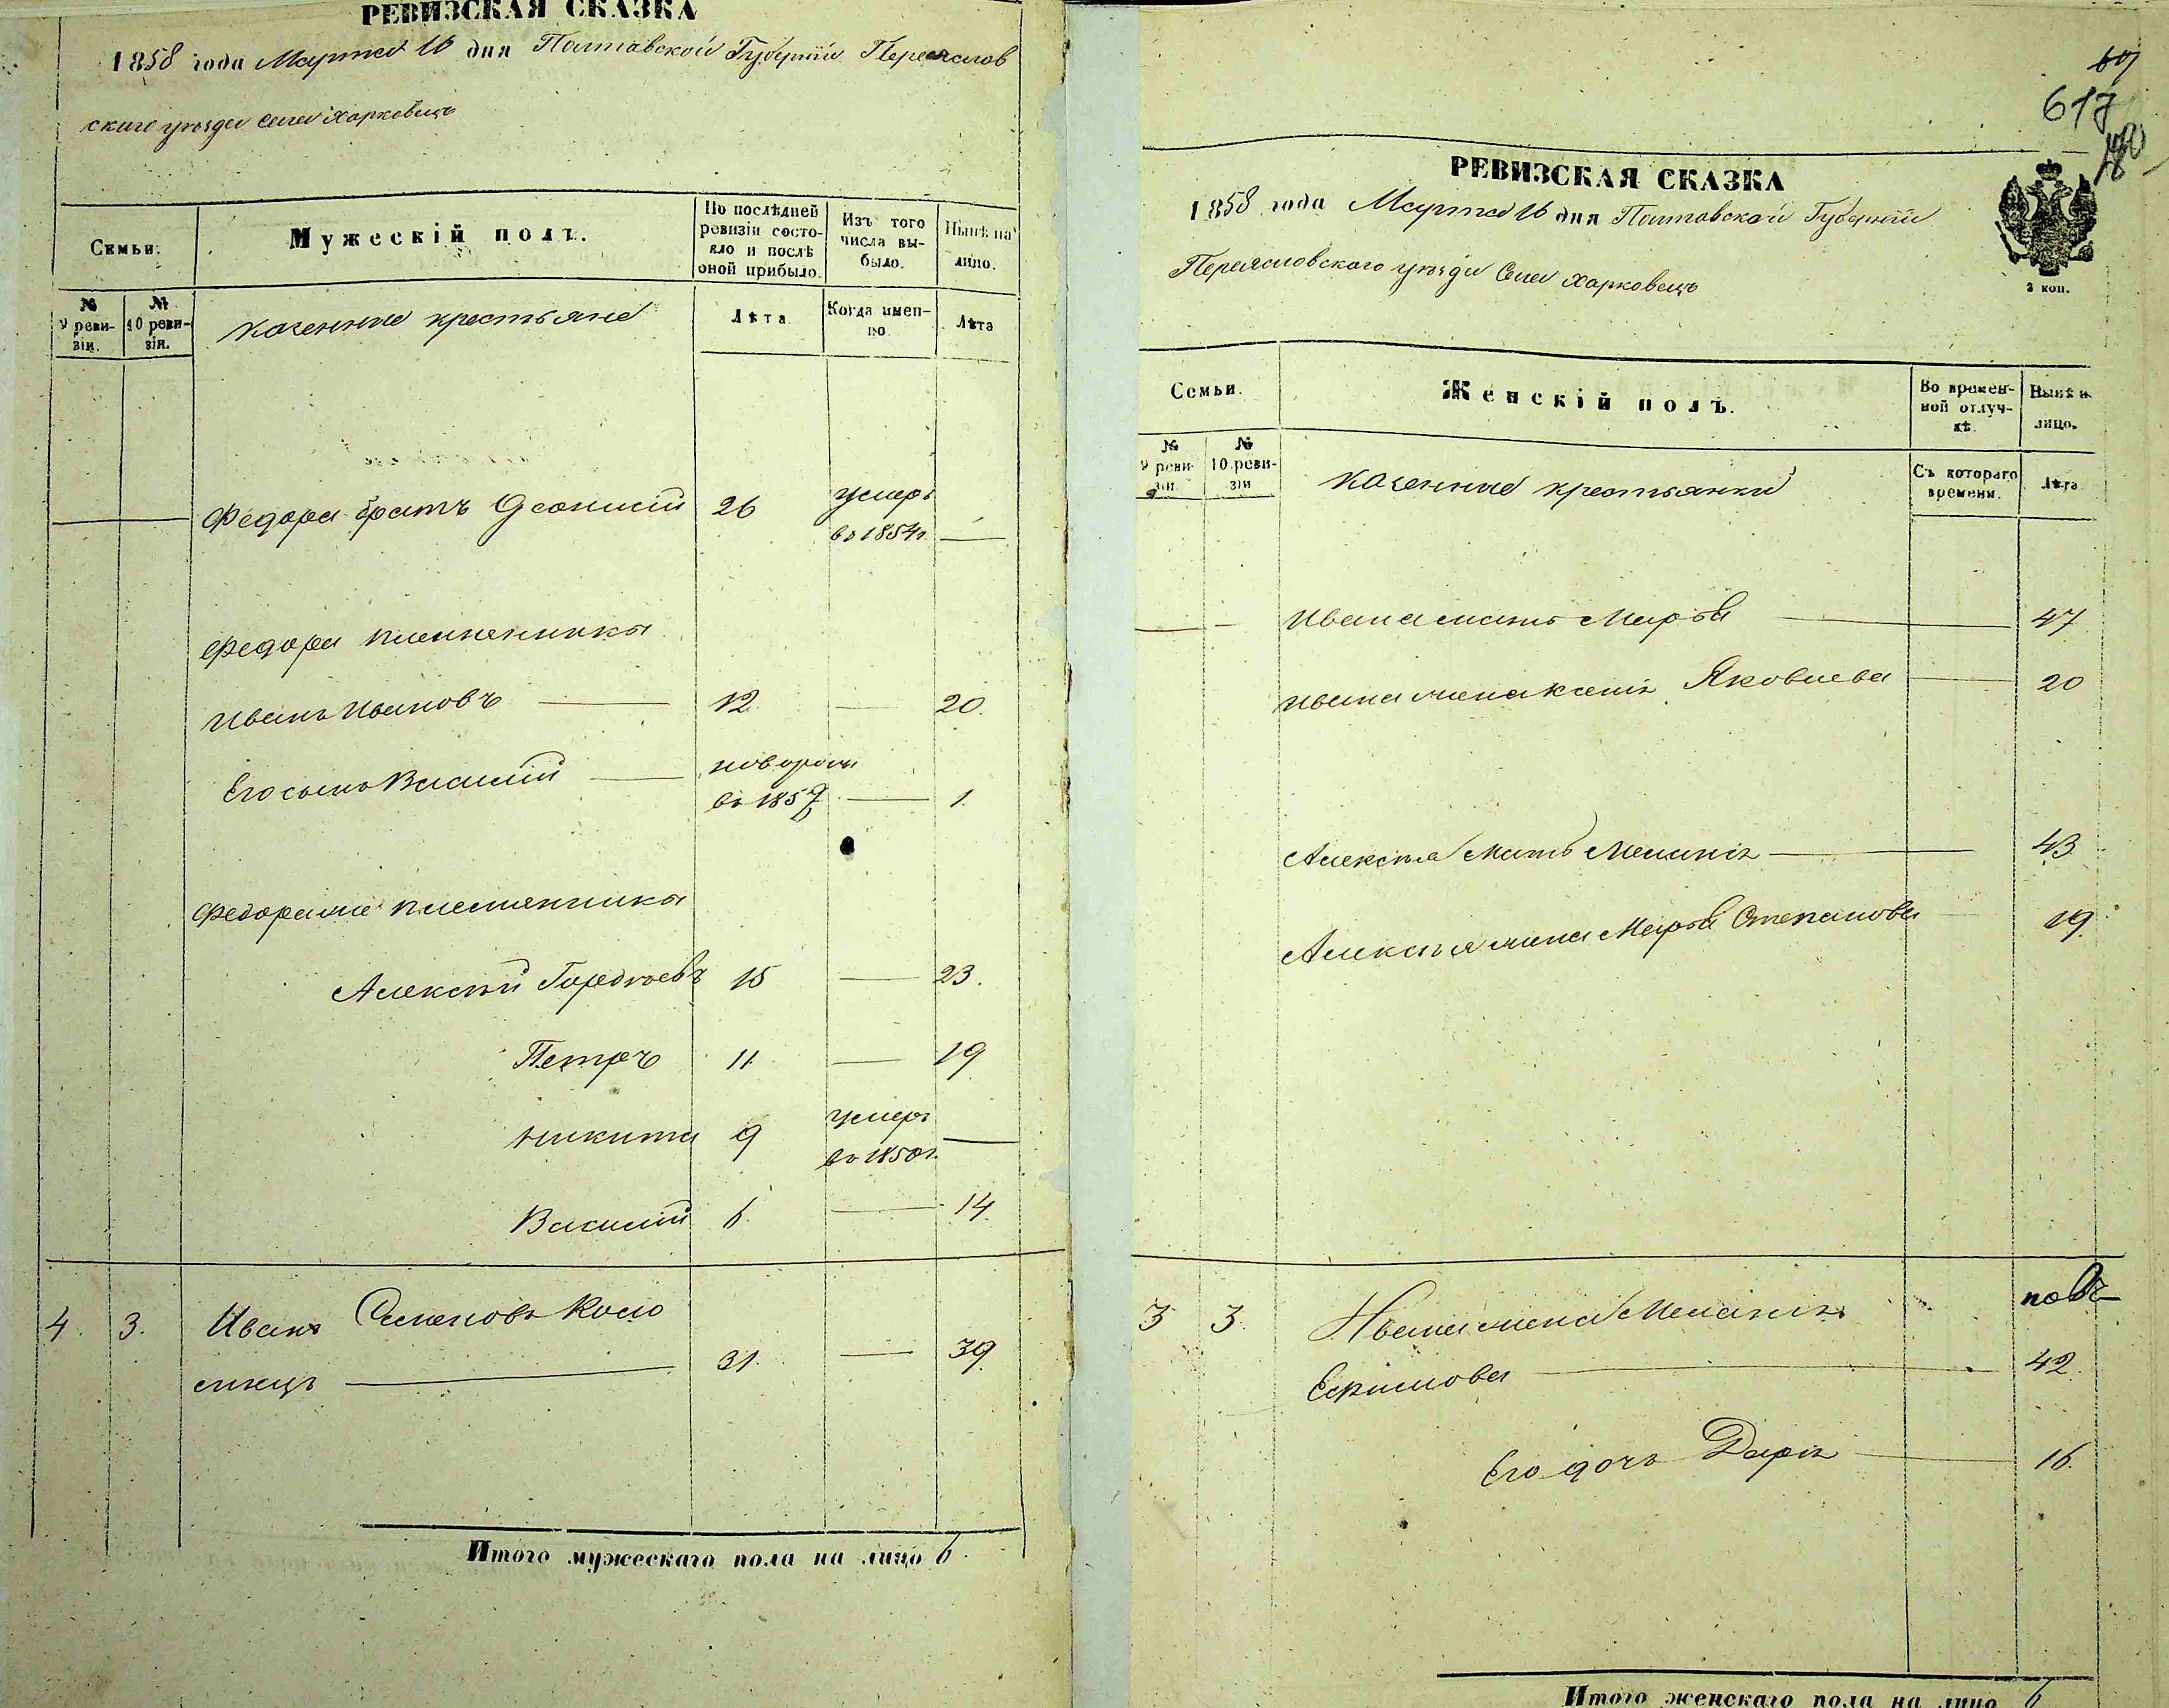 РЕВИЗСКАЯ СКАЗКА
1858 года Марта 16 дня Полтавской Губерніи Переяслов
скаго уѣзда Села Харковецъ
Семьи.
Мужескій полъ.
По послѣдней ревизіи состояло и послѣ оной прибыло.
Изъ того числа выбыло.
Нынѣ на лицо.
№ 9 ревизіи.
№ 10 ревизіи.
казенные крестьяне
Лѣта
Когда именно.
Лѣта
Федора братъ Деонисій 26 умеръ
въ 1854г. —
Федора племенники
Иванъ Ивановъ — 12. — 20.
Его сынъ Василій — новорож
въ 1857 — 1.
Федора же племенники
Алексѣй Гордѣевъ 15 — 23.
Петръ 11 — 19
Никита 9 умеръ
въ 1850г. —
Василій 6. — 14.
4. 3. Иванъ Семеновъ Коло
міецъ — 31. — 39.
Итого мужескаго пола на лицо 6.
617
180
РЕВИЗСКАЯ СКАЗКА
1858 года Марта 16 дня Полтавской Губерніи
Переясловскаго уѣзда Села Харковецъ
3 коп.
Семьи.
Женскій полъ.
Во временной отлучкѣ.
Нынѣ н лицо.
№ 9 ревизіи
№ 10 ревизіи
казенные крестьянки
Съ котораго времени.
Лѣта
Ивана мать Марья — 47.
Ивана жена Ксенія Яковлева — 20
Алексѣя Мать Меланія — 43
Алексѣя жена Марья Степанова — 19.
3 3. Ивана жена Меланія
Ефимова — 42.
Его дочь Дарія — 16.
Итого женскаго пола на лицо 6